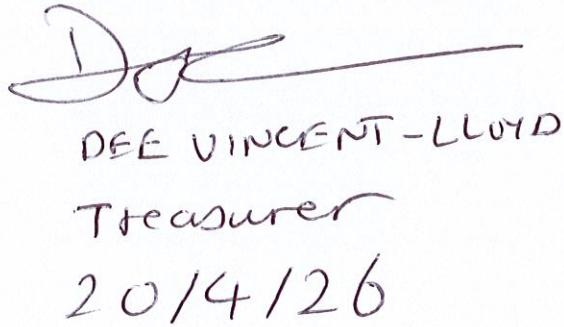 DEE VINCENT-LLOYD
Treasurer
20/4/26